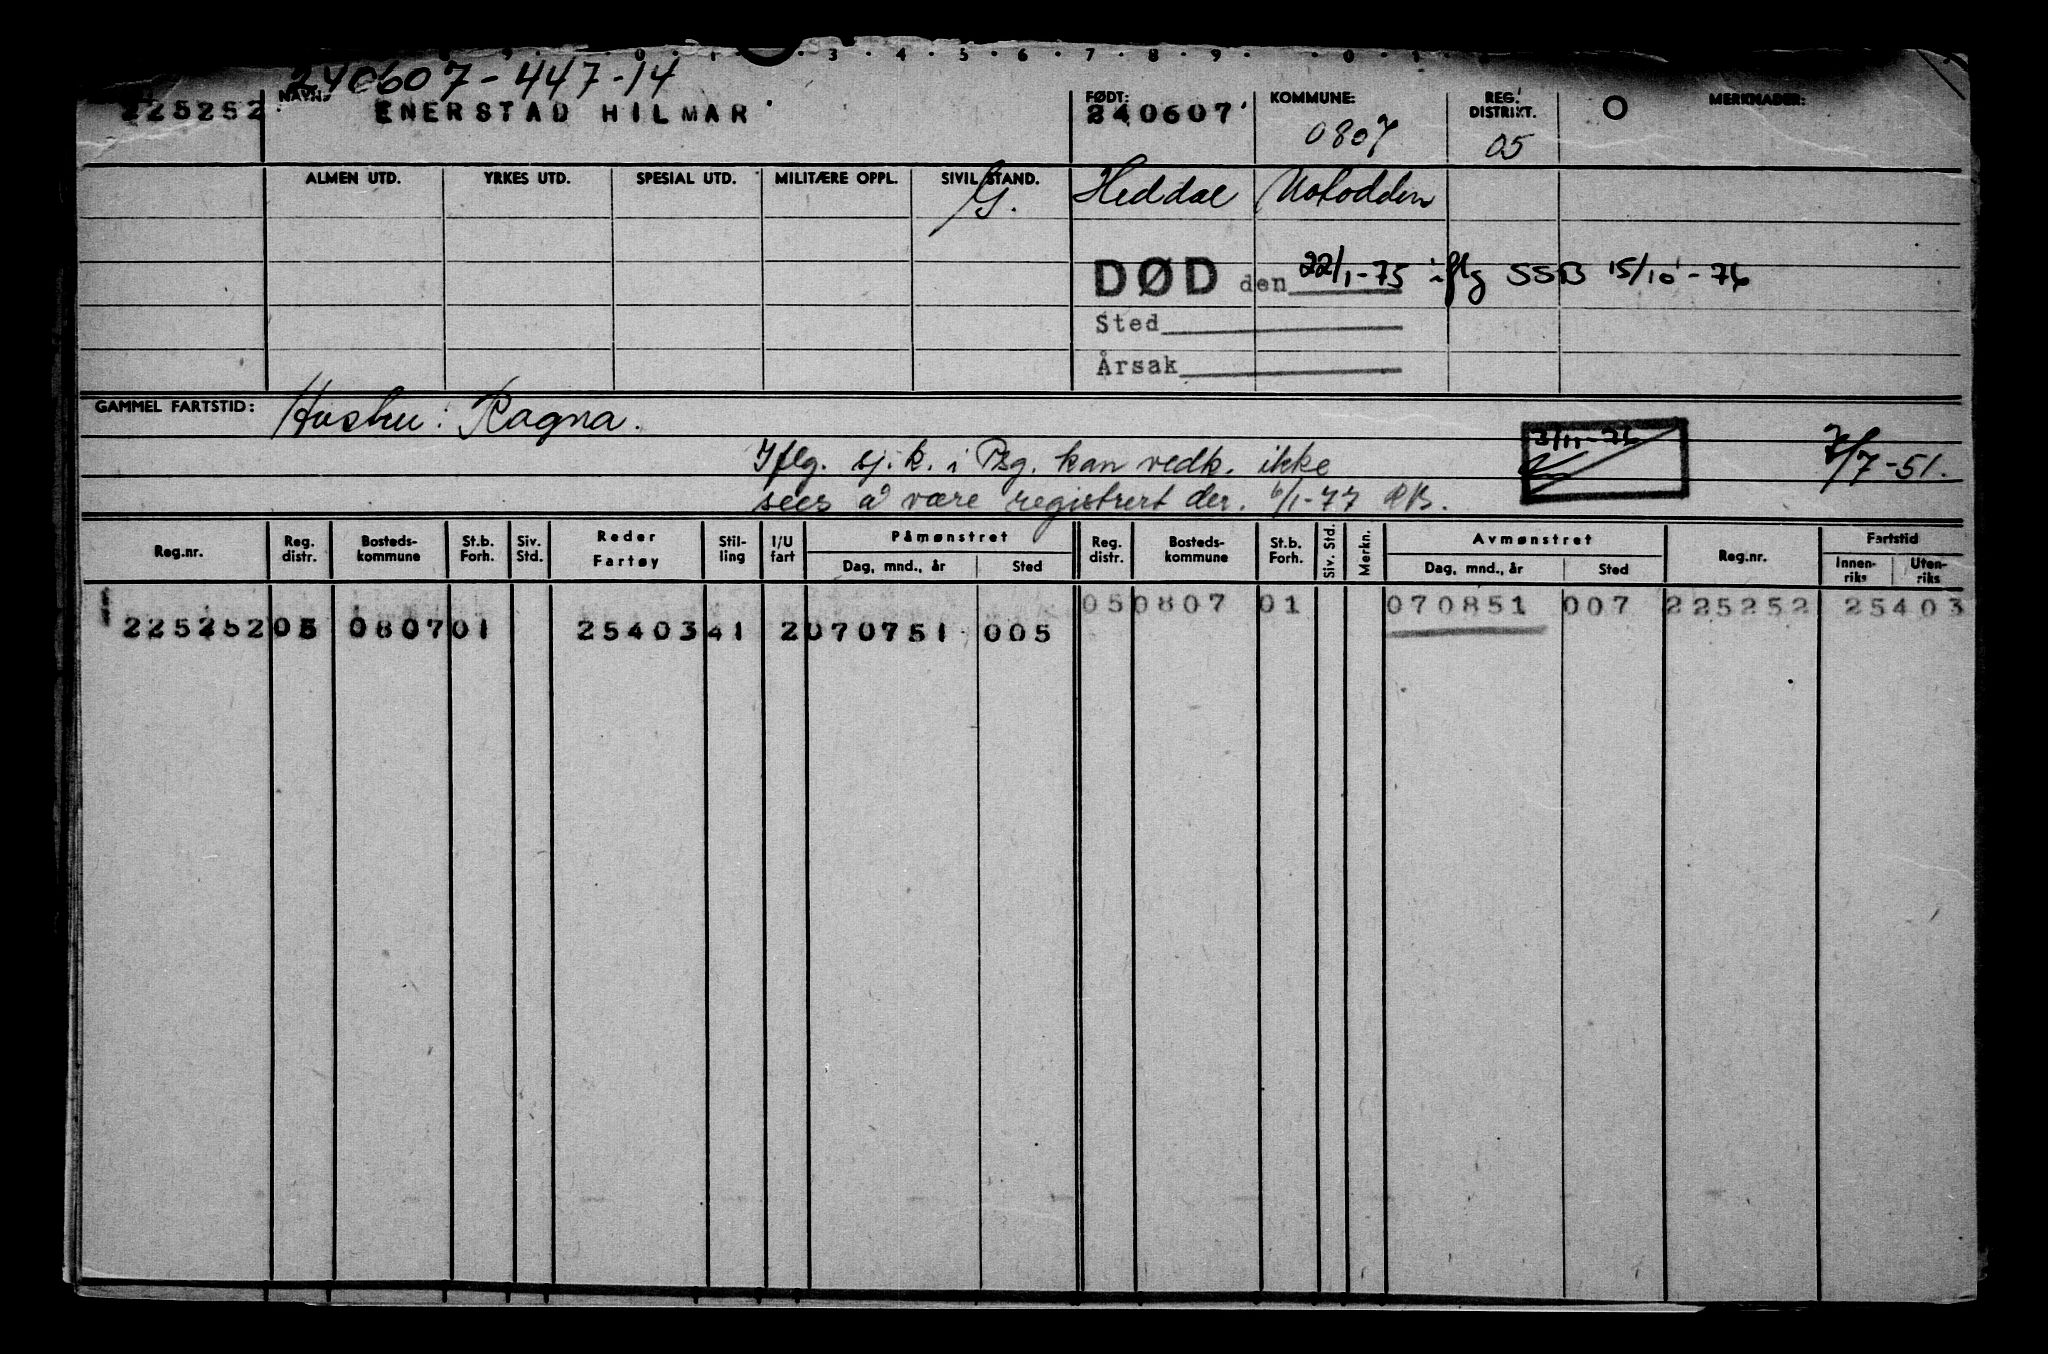 9 . 0 . 1 . 3 . 4 . 5 . 6 . 7 . 8 . 9 . 0 . 1
240607-447-14
225252 NAVN: ENERSTAD HILMAR FØDT: 240607 KOMMUNE: 0807 REG. DISTRIKT. 05 MERKNADER:
ALMEN UTD. YRKES UTD. SPESIAL UTD. MILITÆRE OPPL. SIVIL STAND. G. Heddal Notodden
DØD den 22/1-75 iflg SSB 15/10-76
Sted
Årsak
GAMMEL FARTSTID: Hustru: Ragna.
3/11-76 7/7-51.
Iflg. sj.k. i Psg. kan vedk. ikke
sees å være registrert der. 6/1-77 RB.
Reg.nr. Reg. distr. Bosteds-kommune St.b. Forh. Siv. Std. Reder Fartøy Stil-ling I/U fart Påmønstret Dag, mnd., år Sted Reg. distr. Bosteds-kommune St.b. Forh. Siv. Std. Merkn. Avmønstret Dag, mnd., år Sted Reg.nr. Fartstid Innen-riks Uten-riks
05 0807 01 070851 007 225252 25403
225252 05 0807 01 25403 41 2 070751 005